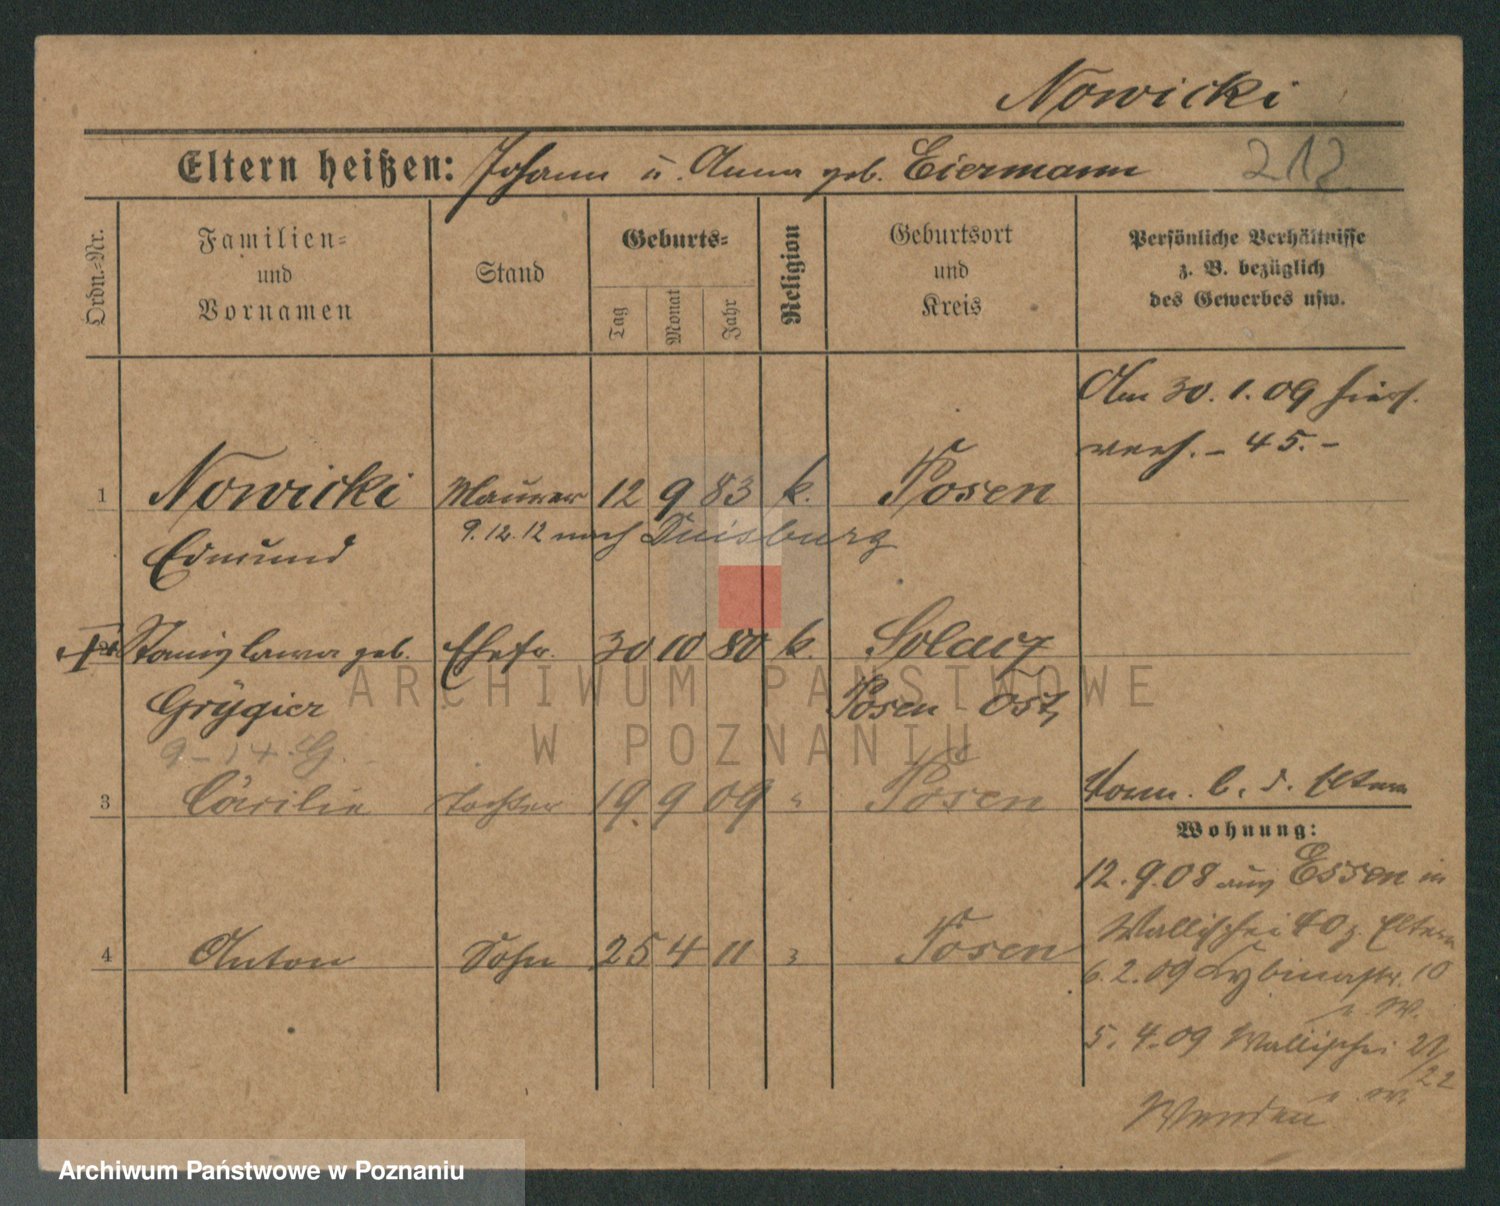 Nowicki
Eltern heißen: Johann u. Anna geb. Eiermann
212
Ordn.-Nr.
Familien-
und
Vornamen
Stand
Geburts-
Tag
Monat
Jahr
Religion
Geburtsort
und
Kreis
Persönliche Verhältnisse
z. B. bezüglich
des Gewerbes usw.
Am 30. 1. 09 hier
verh. - 45. -
1 Nowicki Maurer 12 9 83 k. Posen
9. 12. 12 nach Duisburg
Edmund
Stanislawa geb. Ehefr. 30 10 80 k. Solacz
Grÿgier Posen Ost
3 Cäcilie Tochter 19 9 09 Posen
b. d. Eltern
Wohnung:
12. 9. 08 aus Essen in
Wallischei 40 z. Eltern
4 Anton Sohn 25 4 11 Posen
6. 2. 09 Lybinastr. 10
5. 4. 09 Wallischei 21/22
Wenden
ARCHIWUM PAŃSTWOWE
W POZNANIU
Archiwum Państwowe w Poznaniu